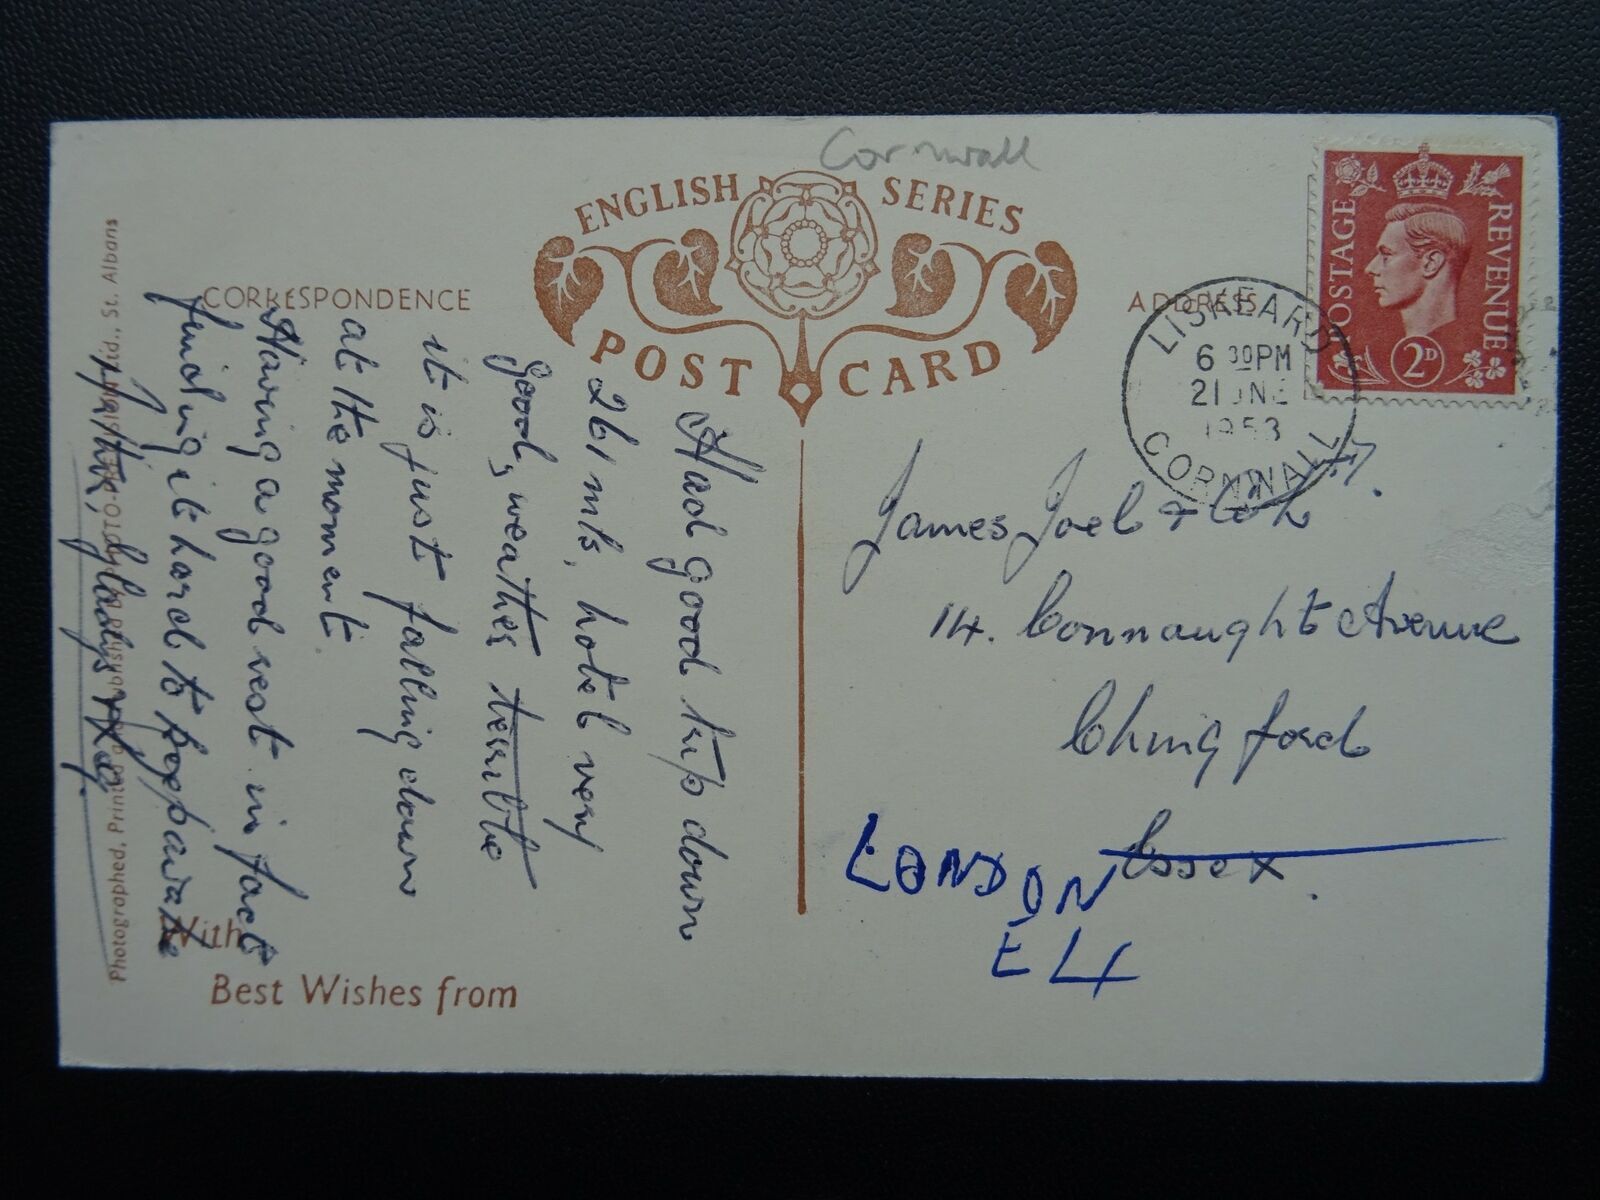 Cornwall
ENGLISH SERIES
POST CARD
CORRESPONDENCE
ADDRESS
POSTAGE REVENUE
2D
LISKEARD
6 30PM
21 JNE
1953
CORNWALL
Had good trip down
261 mls, hotel very
good, weather terrible
it is just falling down
at the moment.
Having a good rest in fact
finding it hard to
Gladys
With
Best Wishes from
Photographed, Printed and Published by Ltd., St. Albans
James Joel &
14. Connaught Avenue
Chingford
Essex.
LONDON
E4